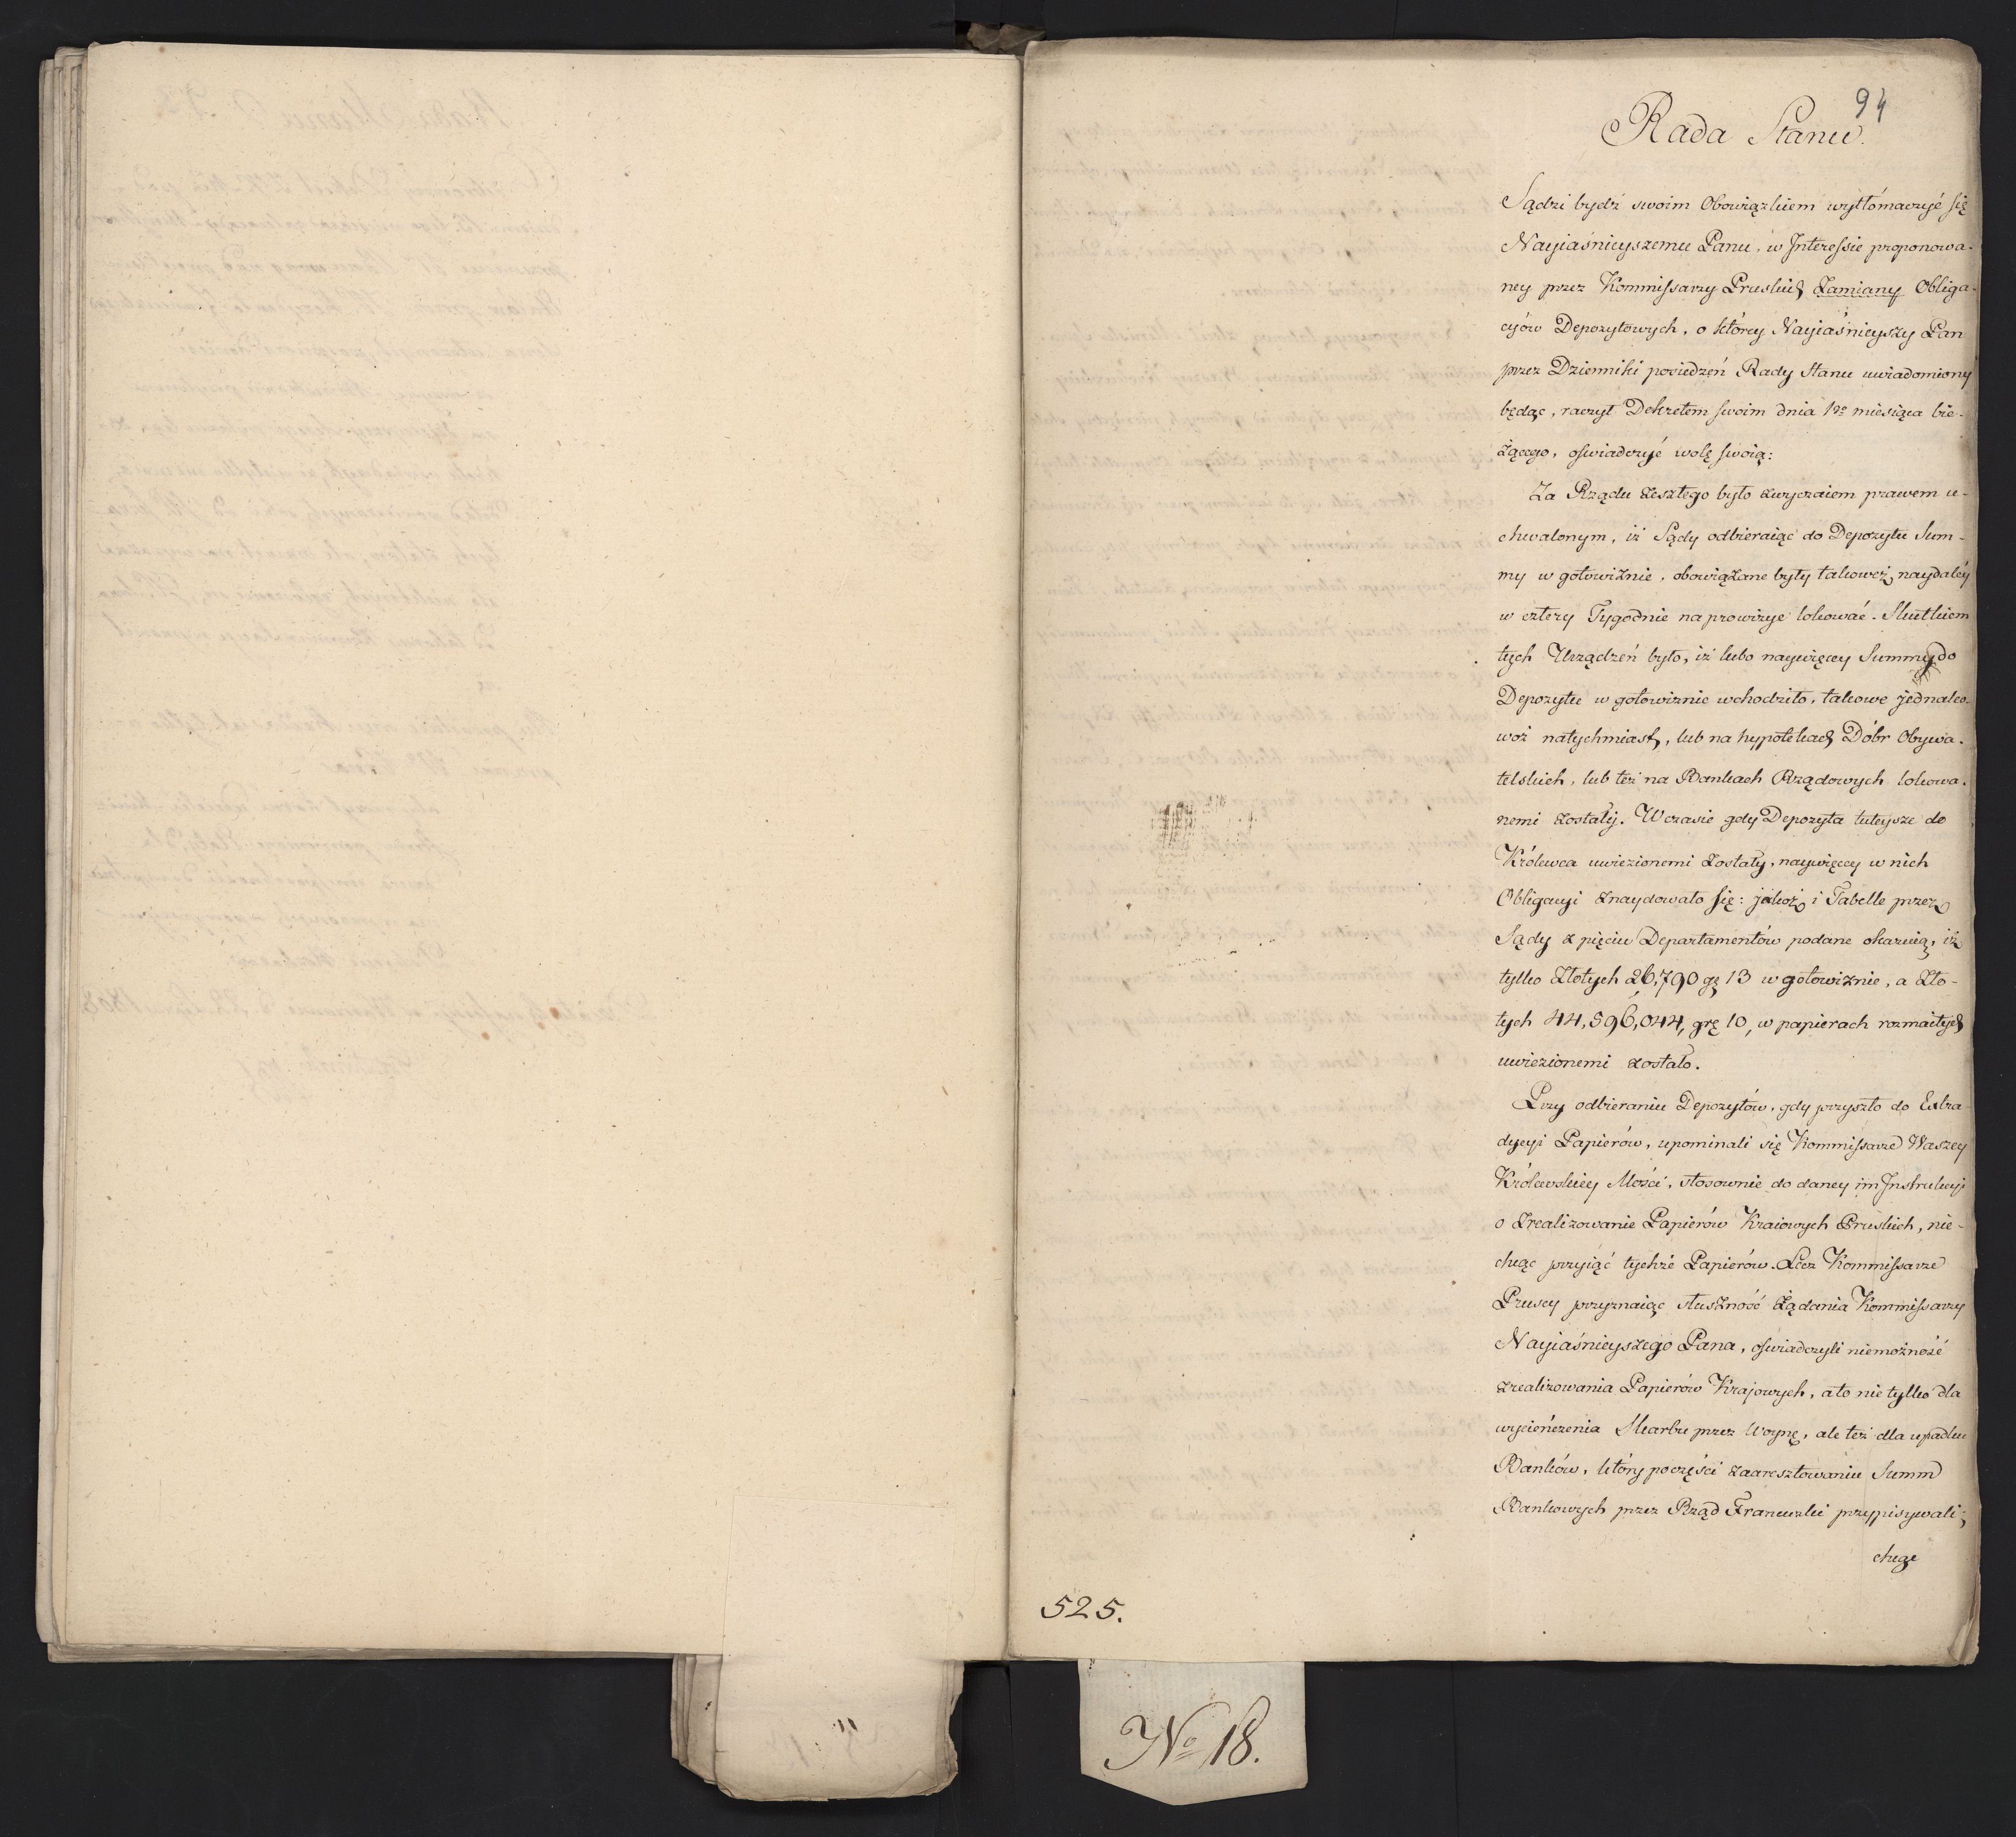 94
Rada Stanu.
Sądzi bydź swoim Obowiązkiem wytłómaczyć się
Nayiaśnieyszemu Panu, w Interessie proponowa-
ney przez Kommissarzy Pruskich Zamiany Obliga-
cyów Depozytowych, o którey Nayiaśnieyszy Pan
przez Dzienniki posiedzeń Rady Stanu uwiadomiony
będąc, raczył Dekretem swoim dnia miesiąca bie-
żącego, oświadczyć wolę swoią:
Za Rządu zeszłego było zwyczaiem prawem u-
chwalonym, iż Sądy odbieraiąc do Depozytu Sum-
my w gotowiźnie, obowiązane były takoweż naydaléy
w cztery Tygodnie na prowizye lokować. Skutkiem
tych Urządzeń było, iż lubo naywięcey Summy do
Depozytu w gotowiznie wchodziło, takowe jednako-
woż natychmiast, lub na hypotekach Dóbr Obywa-
telskich, lub też na Bankach Rządowych lokowa-
nemi zostały. W czasie gdy Depozyta tuteysze do
Królewca uwiezionemi zostały, naywięcey w nich
Obligacyi znaydowało się: jakoż i Tabelle przez
Sądy z pięciu Departamentów podane okazuią, iż
tylko Złotych 26,790 gr 13 w gotowiźnie, a Zło-
tych 44,596,044, gr 10, w papierach rozmaitych
uwiezionemi zostało.
Przy odbieraniu Depozytów, gdy przyszło do Extra-
dycyi Papierów, upominali się Kommissarze Waszey
Królewskiey Mości, stosownie do daney im Instrukcyi
o zrealizowanie Papierów Kraiowych Pruskich, nie-
chcąc przyiąć tychże Papierów. Lecz Kommissarze
Pruscy przyznaiąc słuszność żądania Kommissarzy
Nayiaśnieyszego Pana, oświadczyli niemożność
zrealizowania Papierów Krajowych, a to nie tylko dla
wycieńczenia Skarbu przez Woynę, ale też dla upadku
Banków, który poczęści zaaresztowaniu Summ
Bankowych przez Rząd Francuzki przypisywali;
chcąc
525.
No 18.